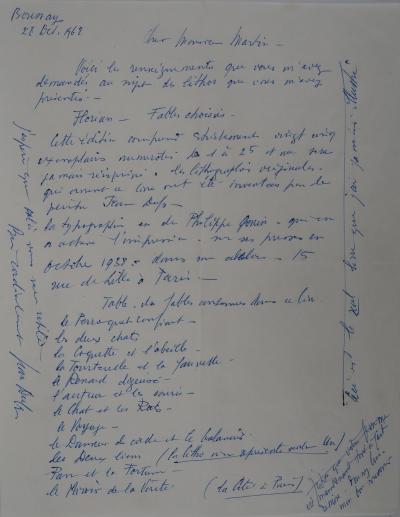 Boussay
28 Oct. 1968
Cher Monsieur Martin -
Voici les renseignements que vous m'avez
demandés au sujet des lithos que vous m'avez
présentés. -
Florian - Fables choisies.
Cette édition comprend strictement vingt cinq
exemplaires numérotés de 1 à 25 et ne sera
jamais réimprimée. Les lithographies originales
qui ornent ce livre ont été inventées par le
peintre Jean Dufy
La typographie est de Philippe Gonin - qui en
a achevé l'impression sur ses presses en
octobre 1938 - dans son atelier - 15
rue de Lille à Paris. -
Table des fables contenues dans ce livre
le Perroquet confiant -
les deux chats
la Coquette et l'abeille -
la Tourterelle et la fauvette -
le Renard déguisé -
l'auteur et la souris -
le Chat et les Rats -
le Voyage -
le Danseur de corde et le balancier
Les Deux lions (la litho
Pan et la Fortune -
le Miroir de la Vérité. (la Cité à Paris)
ceci est le seul livre que j'ai jamais illustré
J'espère que cela vous sera utile -
Bien cordialement Jean Dufy